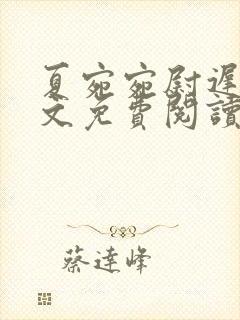 夏宛宛尉遲
文免費閱讀
蔡達峰